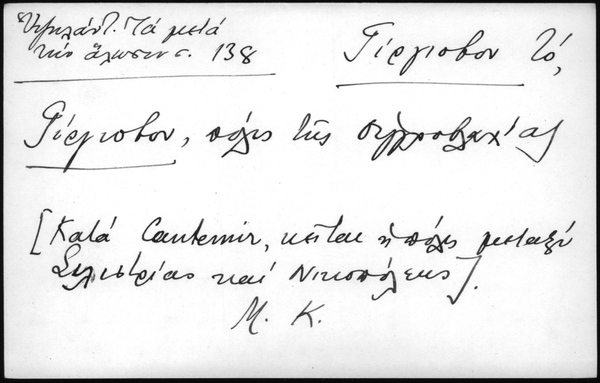 Ὑψηλάντ. Τὰ μετὰ
τὴν ἅλωσιν σ. 138
Γίργιοβον τό,
Γίργιοβον, πόλις τῆς Οὑγγροβλαχίας
[Κατά Cantemir, κεῖται ἡ πόλις μεταξύ
Σιλιστρίας καί Νικοπόλεως].
Μ. Κ.